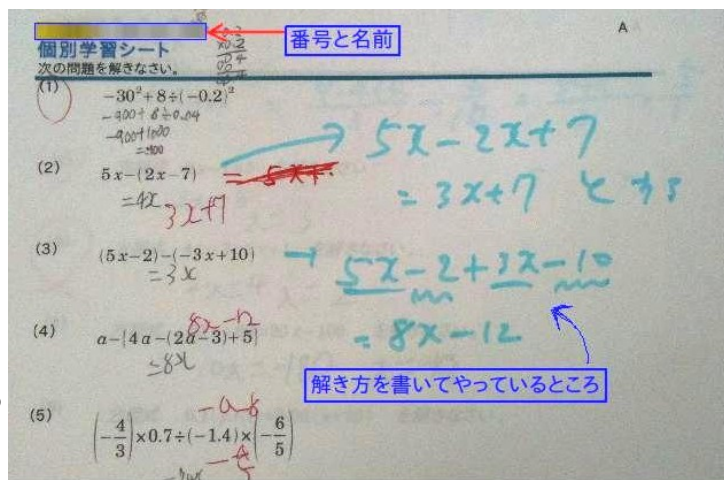 番号と名前
A
個別学習シート
次の問題を解きなさい。
(1) -30²+8÷(-0.2)²
-900+8÷0.04
-900+1000
=100
(2) 5x-(2x-7) = 5x+
=4x
3x+7
5x-2x+7
= 3x+7 とする
(3) (5x-2)-(-3x+10)
=3x
5x-2+3x-10
= 8x-12
8x-12
(4) a-{4a-(2a-3)+5}
=8x
解き方を書いてやっているところ
-a-8
(5) (-4/3)×0.7÷(-1.4)×(-6/5)